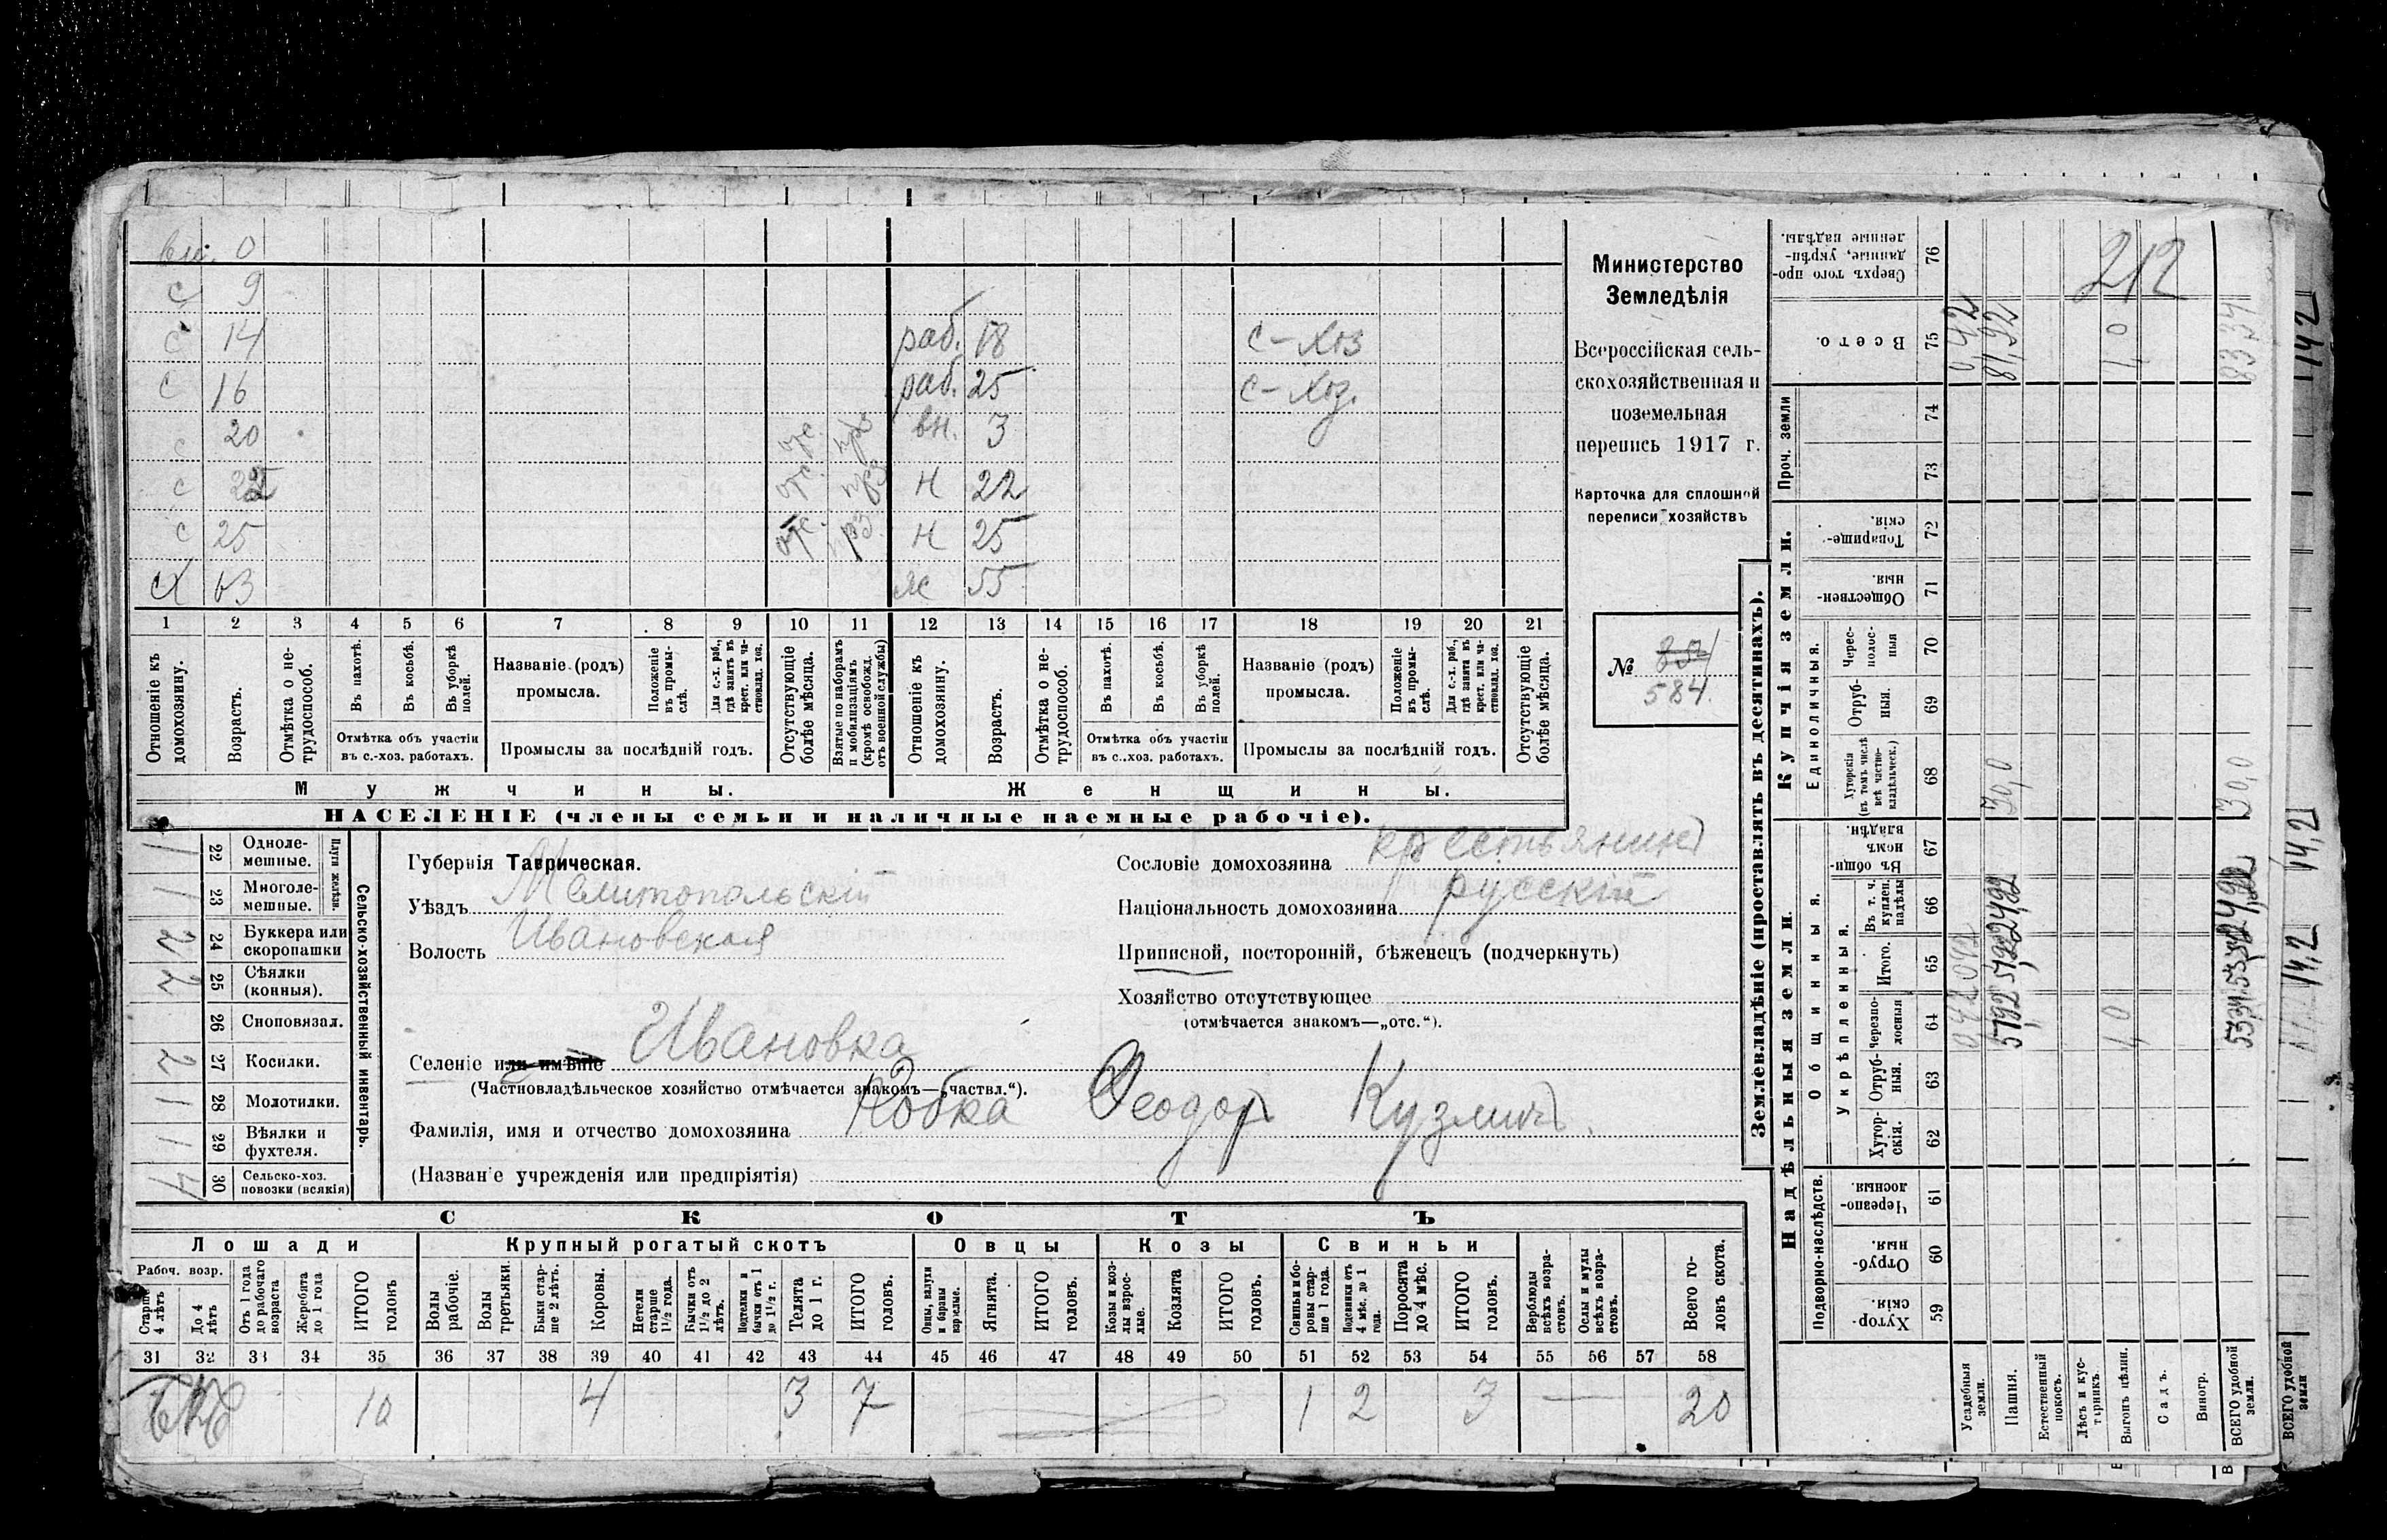 вн. 0
с 9
с 14 раб. 18 с-хоз
с 16 раб. 25 с-хоз.
с 20 отс. вн. 3
с отс. н 22
с 25 отс. н 25
63 55
1 2 3 4 5 6 7 8 9 10 11 12 13 14 15 16 17 18 19 20 21
Отношеніе къ домохозяину.
Возрастъ.
Отмѣтка о не-трудоспособ.
Въ пахотѣ.
Въ косьбѣ.
Въ уборкѣ полей.
Отмѣтка объ участіи въ с.-хоз. работахъ.
Названіе (родъ) промысла.
Положеніе въ промы-слѣ.
Для с.-х. раб., гдѣ занятъ въ крест. или ча-ствовлад. хоз.
Промыслы за послѣдній годъ.
Отсутствующіе болѣе мѣсяца.
Взятые по наборамъ и мобилизаціямъ (кромѣ освобожд. отъ военной службы)
Отношеніе къ домохозяину.
Возрастъ.
Отмѣтка о не-трудоспособ.
Въ пахотѣ.
Въ косьбѣ.
Въ уборкѣ полей.
Отмѣтка объ участіи въ с.-хоз. работахъ.
Названіе (родъ) промысла.
Положеніе въ промы-слѣ.
Для с.-х. раб., гдѣ занята въ крест. или ча-ствовлад. хоз.
Промыслы за послѣдній годъ.
Отсутствующіе болѣе мѣсяца.
Мужчины. Женщины.
НАСЕЛЕНІЕ (члены семьи и наличные наемные рабочіе).
Министерство
Земледѣлія
Всероссійская сель-
скохозяйственная и
поземельная
перепись 1917 г.
Карточка для сплошной
переписи хозяйствъ
№
584.
Сельско-хозяйственный инвентарь.
Плуги желѣзн.
1 22 Одноле-мешные.
1 23 Многоле-мешные.
2 24 Буккера или скоропашки
2 25 Сѣялки (конныя).
26 Сноповязал.
2 27 Косилки.
1 28 Молотилки.
1 29 Вѣялки и фухтеля.
4 30 Сельско-хоз. повозки (всякія)
Губернія Таврическая.
Уѣздъ Мелитопольскій
Волость Ивановская
Селеніе или имѣніе Ивановка
(Частновладѣльческое хозяйство отмѣчается знакомъ—„частвл.“).
Фамилія, имя и отчество домохозяина Кобка Феодор Кузмичъ.
(Названіе учрежденія или предпріятія)
Сословіе домохозяина крестьянинъ
Національность домохозяина русскій
Приписной, посторонній, бѣженецъ (подчеркнуть)
Хозяйство отсутствующее
(отмѣчается знакомъ—„отс.“).
СКОТЪ
Лошади Крупный рогатый скотъ Овцы Козы Свиньи
Рабоч. возр.
Старше 4 лѣтъ
До 4 лѣтъ
Отъ 1 года до рабочаго возраста
Жеребята до 1 года
ИТОГО головъ
Волы рабочіе.
Волы третьяки.
Быки стар-ше 2 лѣтъ.
Коровы.
Нетели старше 1½ года.
Бычки отъ 1½ до 2 лѣтъ.
Подтелки и бычки отъ 1 до 1½ г.
Телята до 1 г.
ИТОГО головъ.
Овцы, валухи и бараны взрослые.
Ягнята.
ИТОГО головъ.
Козы и коз-лы взрос-лые.
Козлята
ИТОГО головъ.
Свиньи и бо-ровы стар-ше 1 года.
Подсвинки отъ 4 мѣс. до 1 года.
Поросята до 4 мѣс.
ИТОГО головъ.
Верблюды всѣхъ возра-стовъ.
Ослы и мулы всѣхъ возра-стовъ.
Всего го-ловъ скота.
31 32 33 34 35 36 37 38 39 40 41 42 43 44 45 46 47 48 49 50 51 52 53 54 55 56 57 58
10 4 3 7 1 2 3 — 20
Землевладѣніе (проставлять въ десятинахъ).
Надѣльныя земли.
Купчія земли.
Проч. земли
Подворно-наслѣдств.
Общинныя.
Укрѣпленныя.
Единоличныя.
Хутор-скія. 59
Отруб-ныя. 60
Черезпо-лосныя. 61
Хутор-скія. 62
Отруб-ныя. 63
Черезпо-лосныя 64
Итого. 65
Въ т. ч. куплен. надѣлы 66
Въ общи-номъ владѣн. 67
Хуторскія (въ томъ числѣ всѣ частно-владѣльческ.) 68
Отруб-ныя. 69
Черес-полос-ныя 70
Обществен-ныя. 71
Товарище-скія. 72
73
74
Всего. 75
Сверхъ того про-данные, укрѣп-ленные надѣлы. 76
Усадебныя земли. 0,42
Пашня. 30,0 81,92
Естественный покосъ.
Лѣсъ и кус-тарникъ.
Выгонъ цѣлин. 1,0 1,0
Садъ.
Виногр.
ВСЕГО удобной земли. 30,0 83,34
212
ВСЕГО удобной земли
14,2 14,2 142